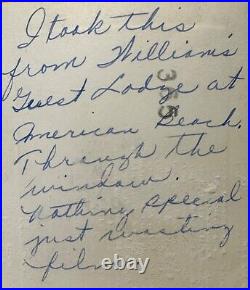 I took this
from Williams'
Guest Lodge at
American Beach.
Through the
window.
Nothing special
just wasting
film.
365